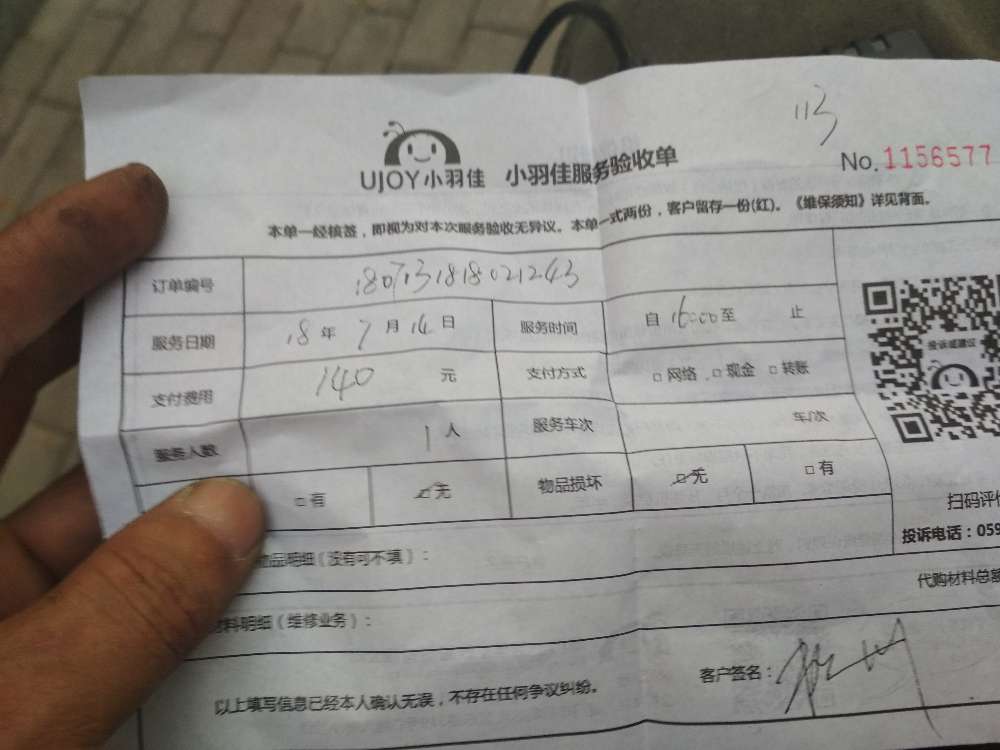 113
UJOY小羽佳 小羽佳服务验收单
No. 1156577
本单一经核签，即视为对本次服务验收无异议。本单一式两份，客户留存一份(红)。《维保须知》详见背面。
订单编号 1807131818021243
服务日期 18 年 7 月 14 日 服务时间 自 16:00 至 止
投诉或建议
支付费用 140 元 支付方式 □ 网络 □ 现金 □ 转账
服务人数 1 人 服务车次 车/次
□ 有 ☑ 无 物品损坏 ☑ 无 □ 有
扫码评价
投诉电话：059
物品明细（没有可不填）：
代购材料总额
材料明细（维修业务）：
以上填写信息已经本人确认无误，不存在任何争议纠纷。 客户签名：